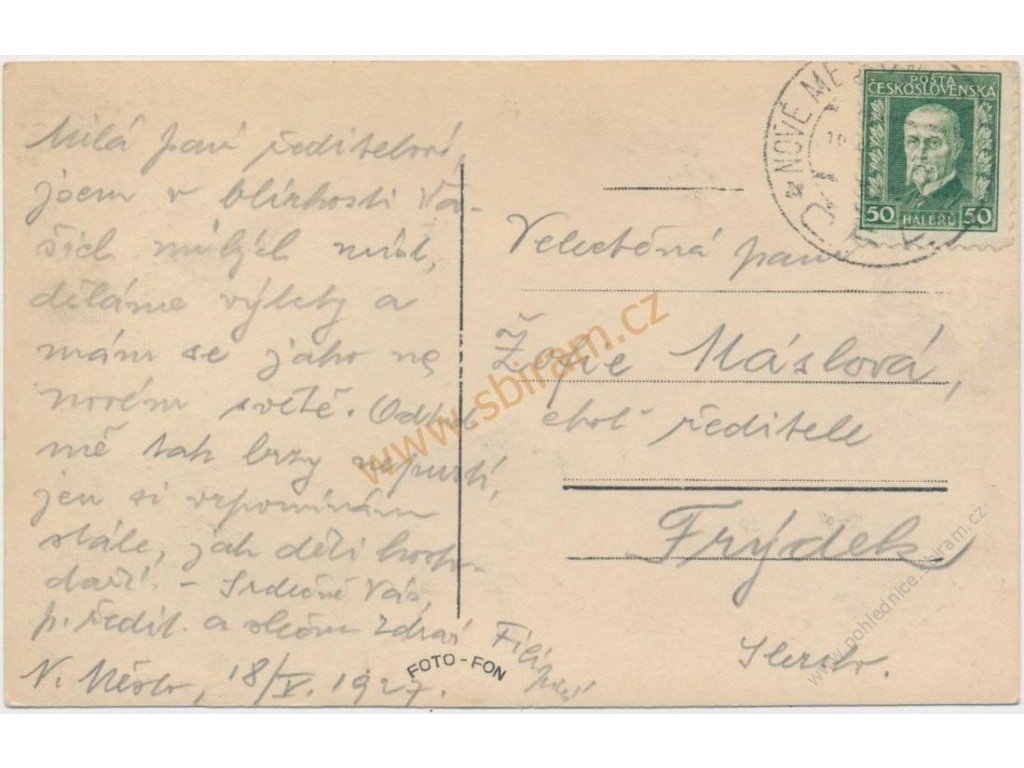 Milá paní ředitelová,
jsem v blízkosti Va-
šich milých míst,
děláme výlety a
mám se jako na
novém světě. Odtud
mě tak brzy nepustí,
jen si vzpomínám
stále, jak děti hospo-
daří. – Srdečně Vás,
p. ředit. a slečnu zdraví
N. Město, 18/V. 1927.
FOTO-FON
NOVÉ MĚ
POŠTA
ČESKOSLOVENSKÁ
50 HALÉŘŮ 50
Velectěná paní
Žofie Máslová,
choť ředitele
Frýdek
Slezsko.
www.sbiram.cz
www.pohlednice.sbiram.cz